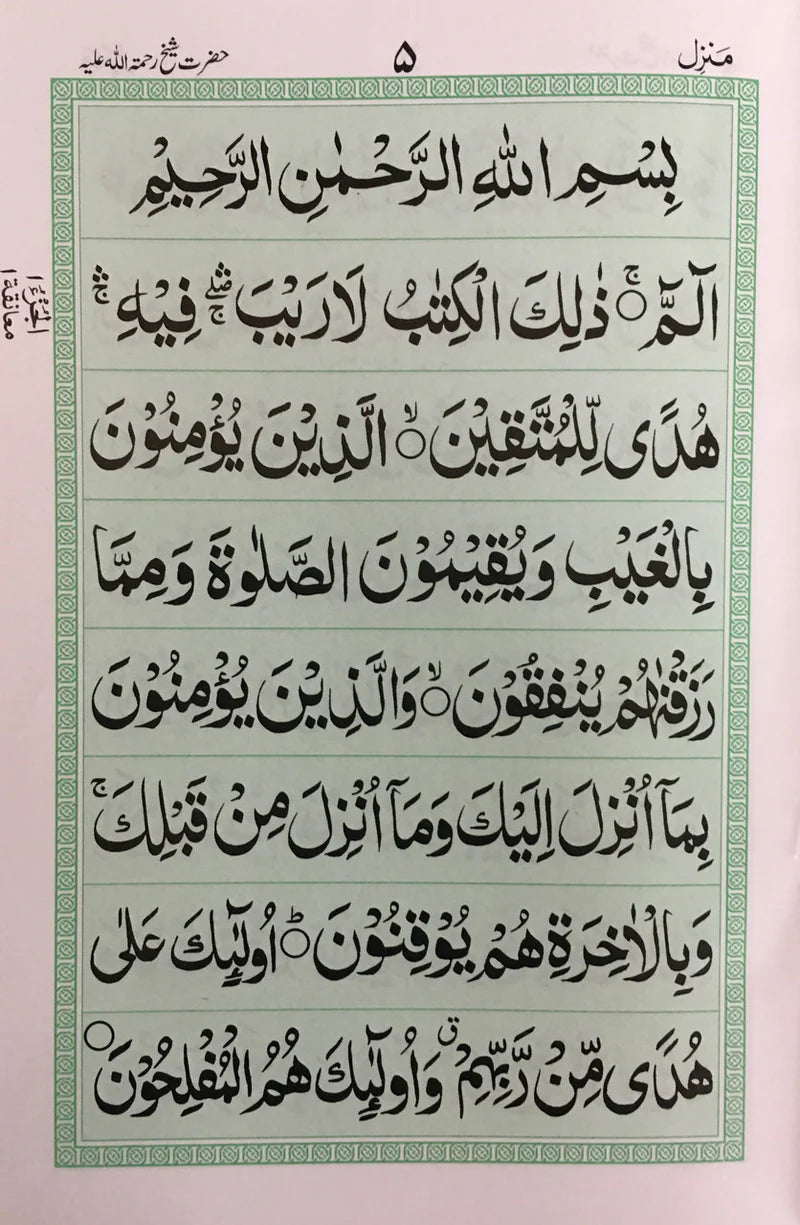 مَنزِل ۵ حضرت شیخ رحمۃ اللہ علیہ
بِسْمِ اللهِ الرَّحْمٰنِ الرَّحِيْمِ
الٓمّٓ ۚ۝ ذٰلِكَ الْكِتٰبُ لَا رَيْبَ ۛۖۚ فِيْهِ ۛۚ
الجُزْءُ ١
معانقة ١
هُدًى لِّلْمُتَّقِيْنَ ۙ۝ الَّذِيْنَ يُؤْمِنُوْنَ
بِالْغَيْبِ وَيُقِيْمُوْنَ الصَّلٰوةَ وَمِمَّا
رَزَقْنٰهُمْ يُنْفِقُوْنَ ۙ۝ وَالَّذِيْنَ يُؤْمِنُوْنَ
بِمَآ اُنْزِلَ اِلَيْكَ وَمَآ اُنْزِلَ مِنْ قَبْلِكَ ۚ
وَبِالْاٰخِرَةِ هُمْ يُوْقِنُوْنَ ؕ۝ اُولٰٓئِكَ عَلٰى
هُدًى مِّنْ رَّبِّهِمْ ق وَاُولٰٓئِكَ هُمُ الْمُفْلِحُوْنَ ۝